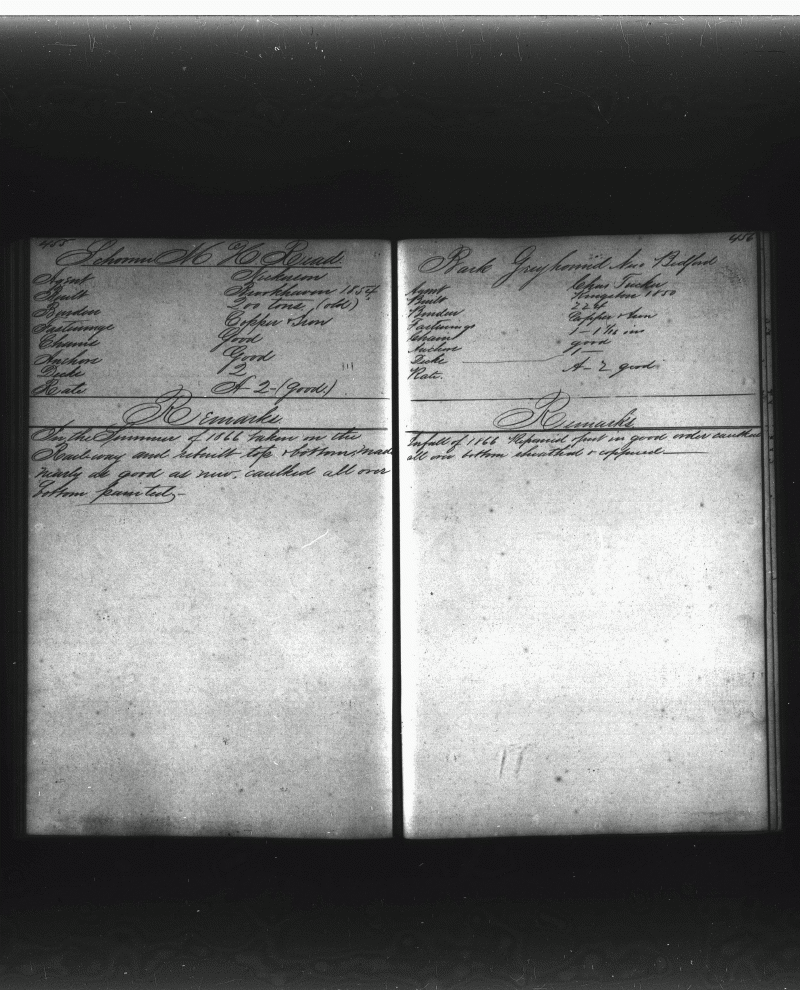 455
Schonor M H Read
Agent Nickerson
Built Brookhaven 1854
Burden 200 tons (old)
Fastenings Copper & Iron
Chains Good
Anchors Good
Decks 2
Rate A-2-(good)
Remarks
In the Summer of 1866 taken on the
Railway and rebuilt top & bottom, made
nearly as good as new, caulked all over
bottom painted,-
456
Bark Greyhound New Bedford
Agent Chas Tucker
Built Kingston 1850
Burden
Fastenings Copper & Iron
Chains 1-1 1/12 in
Anchors good
Decks 1
Rate. A-2 good
Remarks
In fall of 1866 Repaired put in good order caulked
all over bottom sheathed & coppered